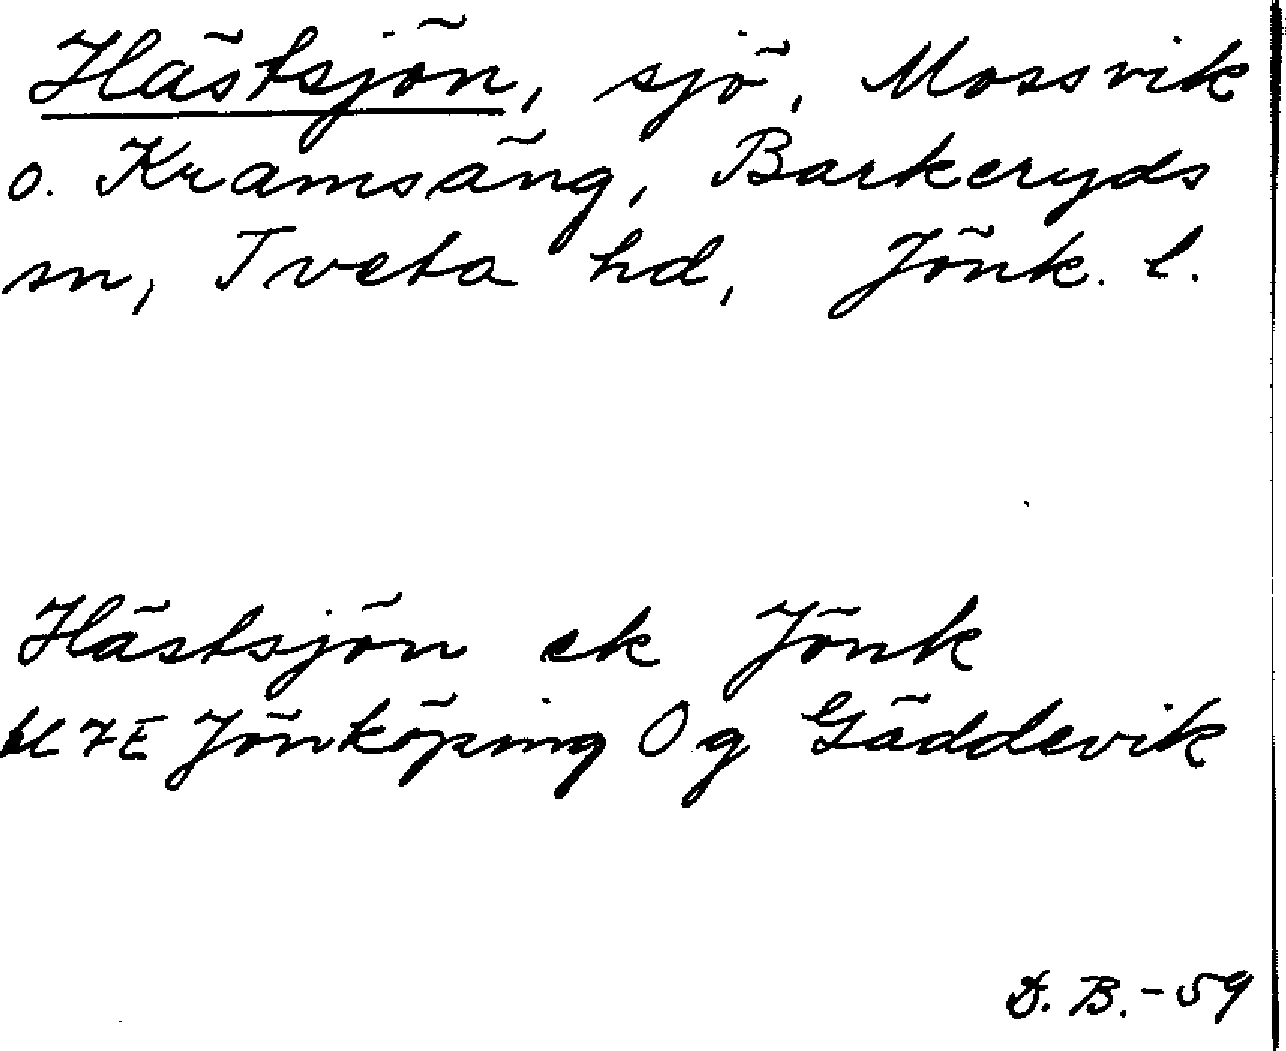 Hästsjön, sjö, Mossvik
o. Kramsäng, Barkeryds
sn, Tveta hd, Jönk. l.
Hästsjön ek Jönk
7E Jönköping Og Gäddevik
D. B. - 59